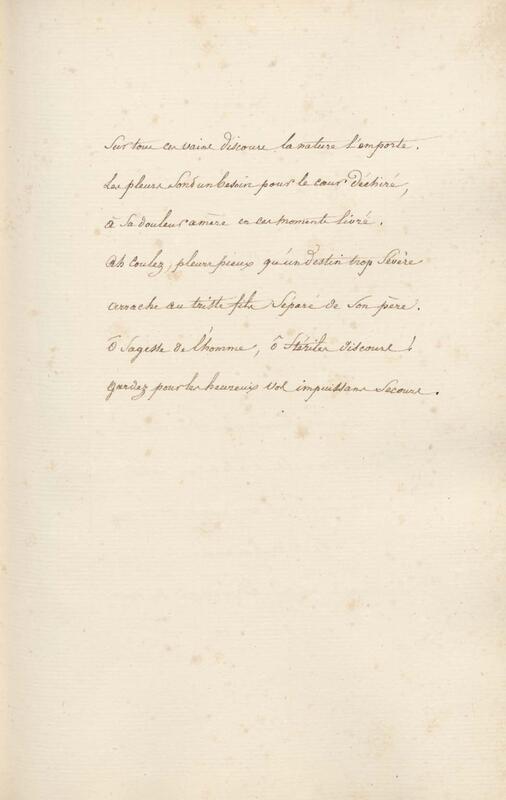 Sur tous ces vains discours la nature l'emporte.
Les pleurs sont un besoin pour le cœur déchiré,
à sa douleur amère en ces momens livré.
Ah coulez, pleurs pieux qu'un destin trop sévère
arrache au triste fils séparé de son père.
ô sagesse de l'homme, ô stériles discours !
gardez pour les heureux vos impuissans secours.